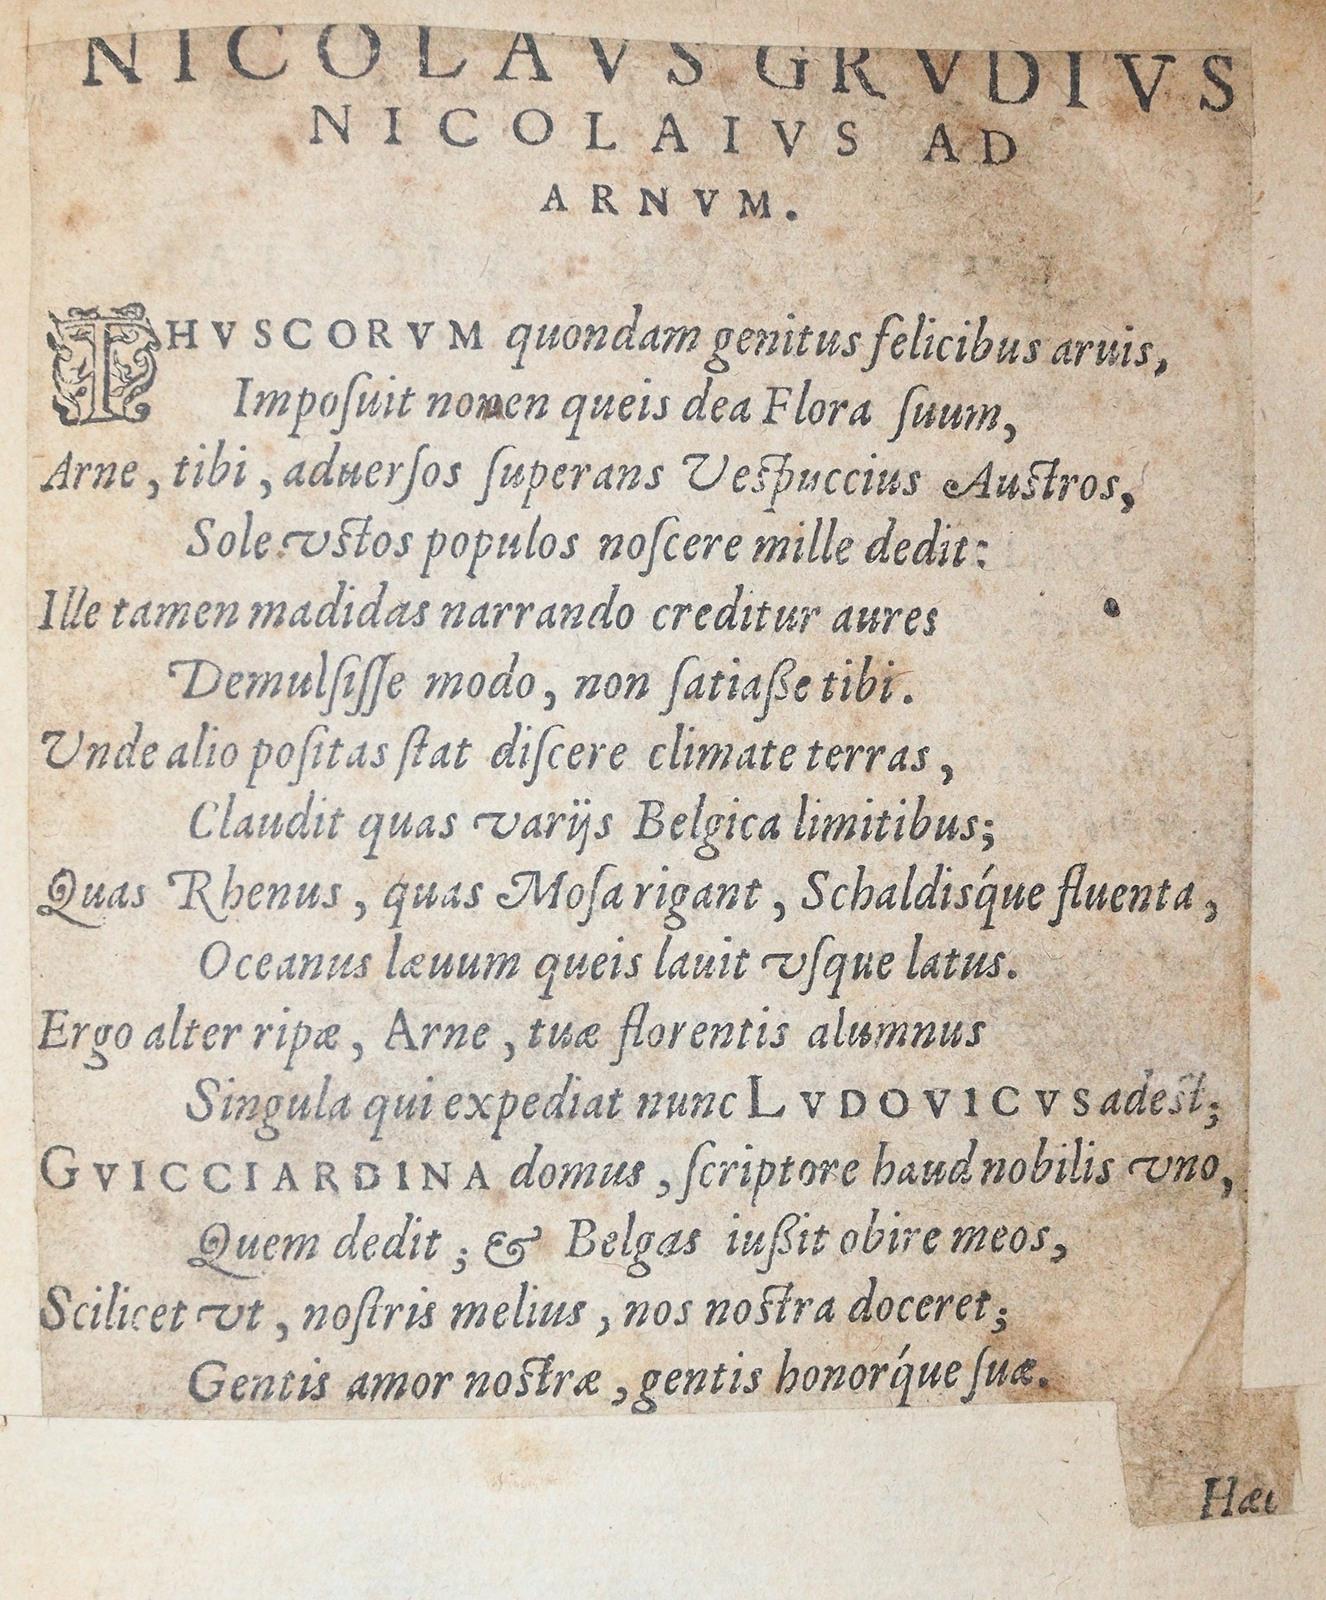 NICOLAVS GRVDIVS
NICOLAIVS AD
ARNVM.
THVSCORVM quondam genitus felicibus aruis,
Impoſuit nomen queis dea Flora ſuum,
Arne, tibi, aduerſos ſuperans Veſpuccius Auſtros,
Sole vſtos populos noſcere mille dedit:
Ille tamen madidas narrando creditur aures
Demulſiſſe modo, non ſatiaße tibi.
Vnde alio poſitas ſtat diſcere climate terras,
Claudit quas varijs Belgica limitibus;
Quas Rhenus, quas Moſa rigant, Schaldisq́ue fluenta,
Oceanus læuum queis lauit vſque latus.
Ergo alter ripæ, Arne, tuæ florentis alumnus
Singula qui expediat nunc LVDOVICVS adeſt;
GVICCIARDINA domus, ſcriptore haud nobilis vno,
Quem dedit; & Belgas iußit obire meos,
Scilicet vt, noſtris melius, nos noſtra doceret;
Gentis amor noſtræ, gentis honorq́ue ſuæ.
Hæc